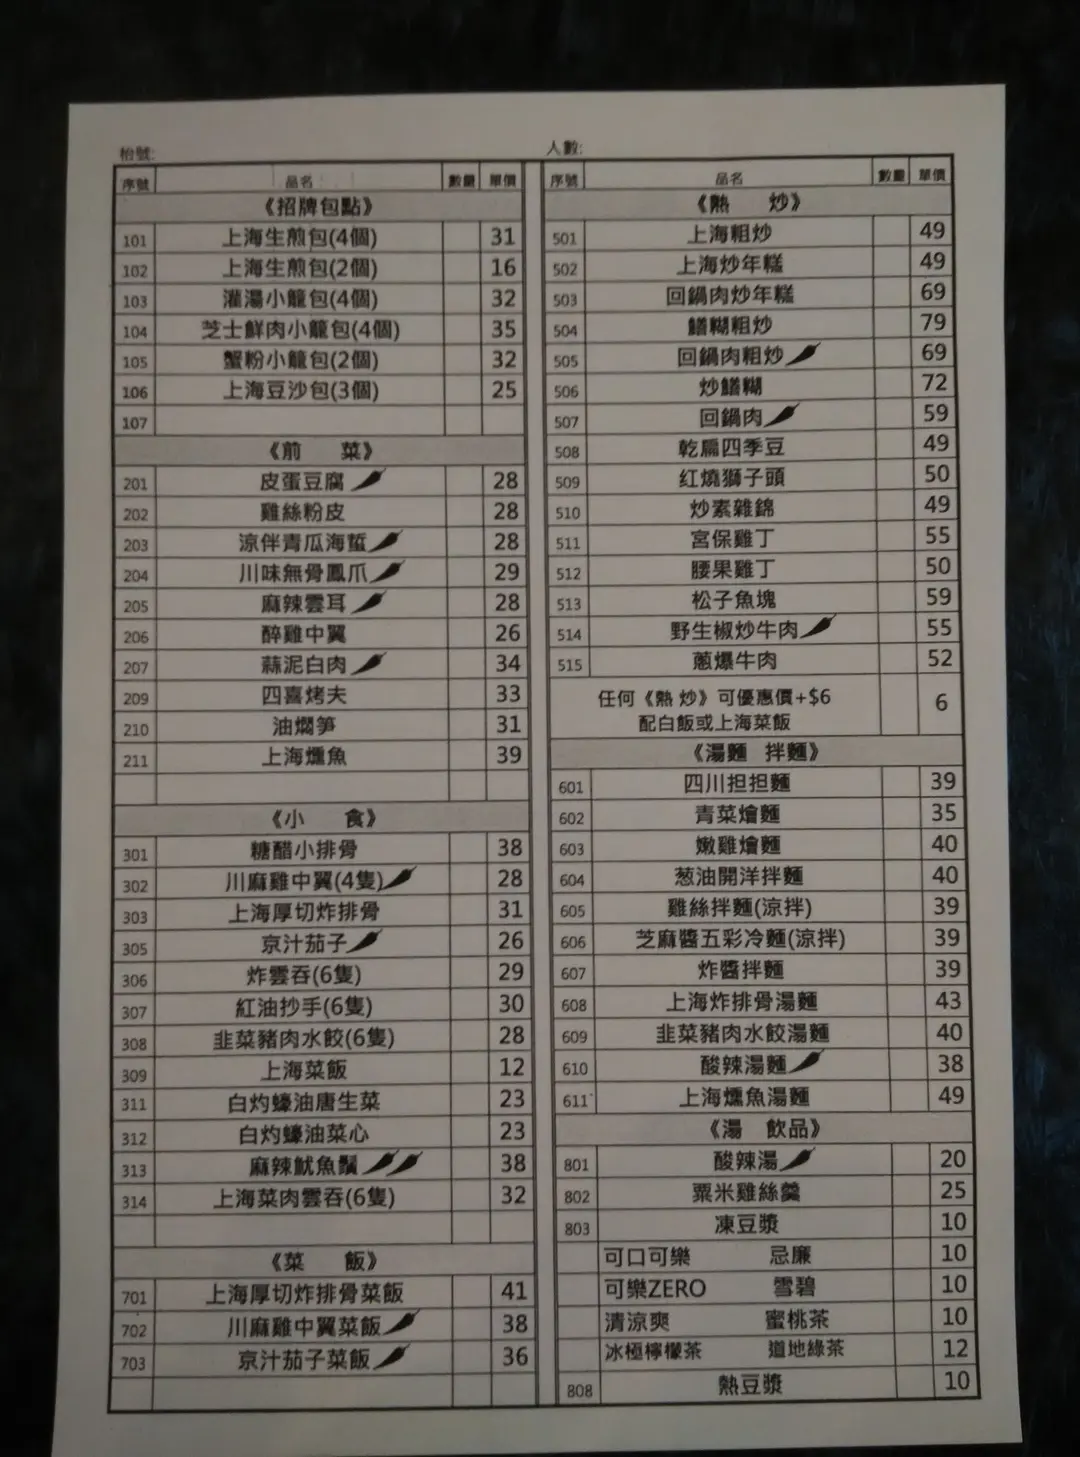 枱號:
人數:
序號 品名 數量 單價
《招牌包點》
101 上海生煎包(4個) 31
102 上海生煎包(2個) 16
103 灌湯小籠包(4個) 32
104 芝士鮮肉小籠包(4個) 35
105 蟹粉小籠包(2個) 32
106 上海豆沙包(3個) 25
107
《前 菜》
201 皮蛋豆腐 28
202 雞絲粉皮 28
203 涼伴青瓜海蜇 28
204 川味無骨鳳爪 29
205 麻辣雲耳 28
206 醉雞中翼 26
207 蒜泥白肉 34
209 四喜烤夫 33
210 油燜笋 31
211 上海燻魚 39
《小 食》
301 糖醋小排骨 38
302 川麻雞中翼(4隻) 28
303 上海厚切炸排骨 31
305 京汁茄子 26
306 炸雲吞(6隻) 29
307 紅油抄手(6隻) 30
308 韭菜豬肉水餃(6隻) 28
309 上海菜飯 12
311 白灼蠔油唐生菜 23
312 白灼蠔油菜心 23
313 麻辣魷魚鬚 38
314 上海菜肉雲吞(6隻) 32
《菜 飯》
701 上海厚切炸排骨菜飯 41
702 川麻雞中翼菜飯 38
703 京汁茄子菜飯 36
序號 品名 數量 單價
《熱 炒》
501 上海粗炒 49
502 上海炒年糕 49
503 回鍋肉炒年糕 69
504 鱔糊粗炒 79
505 回鍋肉粗炒 69
506 炒鱔糊 72
507 回鍋肉 59
508 乾扁四季豆 49
509 红燒獅子頭 50
510 炒素雜錦 49
511 宮保雞丁 55
512 腰果雞丁 50
513 松子魚塊 59
514 野生椒炒牛肉 55
515 蔥爆牛肉 52
任何《熱 炒》可優惠價+$6
配白飯或上海菜飯 6
《湯麵 拌麵》
601 四川担担麵 39
602 青菜燴麵 35
603 嫩雞燴麵 40
604 葱油開洋拌麵 40
605 雞絲拌麵(涼拌) 39
606 芝麻醬五彩冷麵(涼拌) 39
607 炸醬拌麵 39
608 上海炸排骨湯麵 43
609 韭菜豬肉水餃湯麵 40
610 酸辣湯麵 38
611 上海燻魚湯麵 49
《湯 飲品》
801 酸辣湯 20
802 粟米雞絲羹 25
803 凍豆漿 10
可口可樂 忌廉 10
可樂ZERO 雪碧 10
清涼爽 蜜桃茶 10
冰極檸檬茶 道地綠茶 12
808 熱豆漿 10